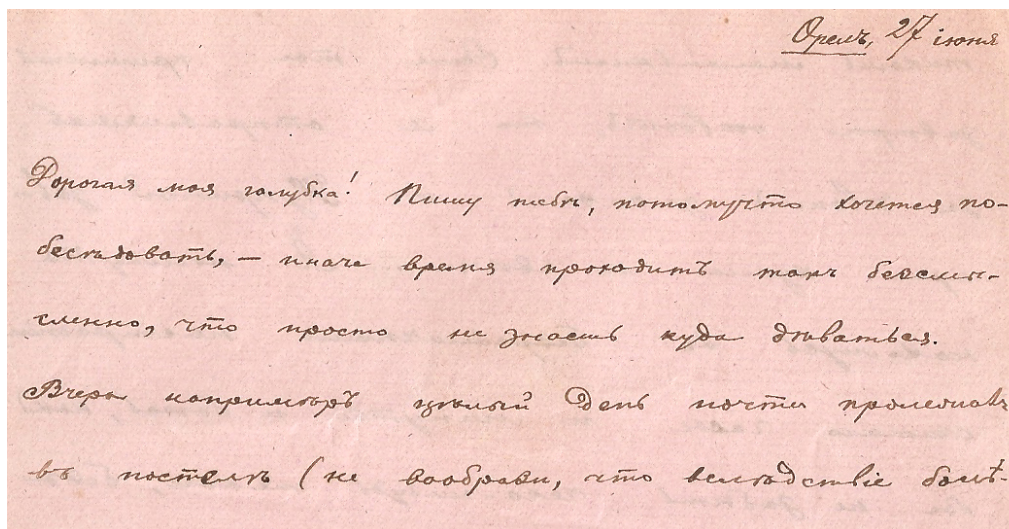 Орелъ, 27 iюня
Дорогая моя голубка! Пишу тебѣ, потомучто хочется по-
бесѣдовать, – иначе время проходитъ такъ безсмы-
сленно, что просто не знаешь куда дѣваться.
Вчера напримѣръ цѣлый день почти пролежалъ
въ постелѣ (не вообрази, что вслѣдствiе болѣ-